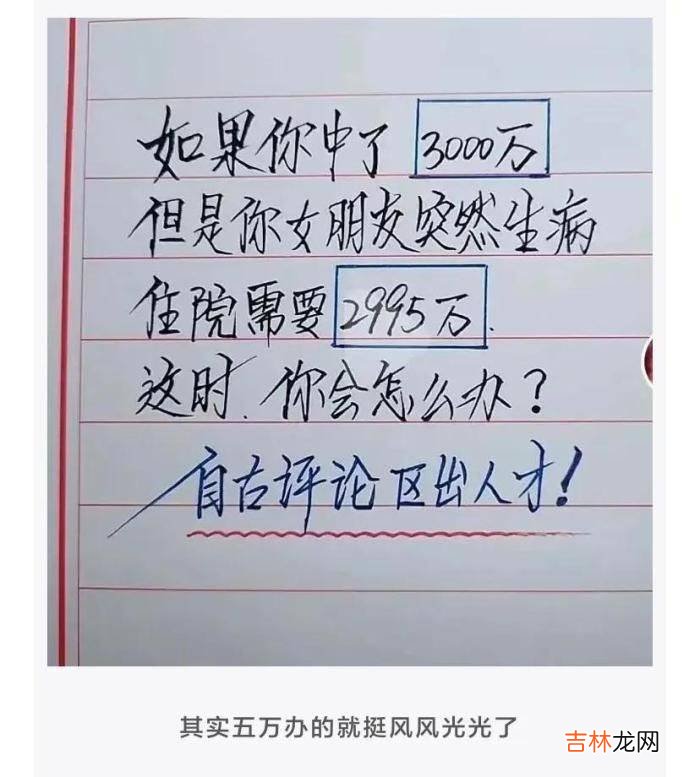 如果你中了 3000万
但是你女朋友突然生病
住院需要 2995万.
这时.你会怎么办?
自古评论区出人才!
其实五万办的就挺风风光光了
吉林龙网